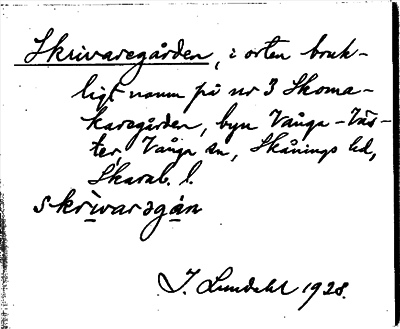 Skrivaregården, i orten bruk-
ligt namn på nr 3 Skoma-
karegården, byn Vånga-Väs-
ter, Vånga sn, Skånings hd,
Skarab. l.
skrivaregán
J. Lundahl 1928.